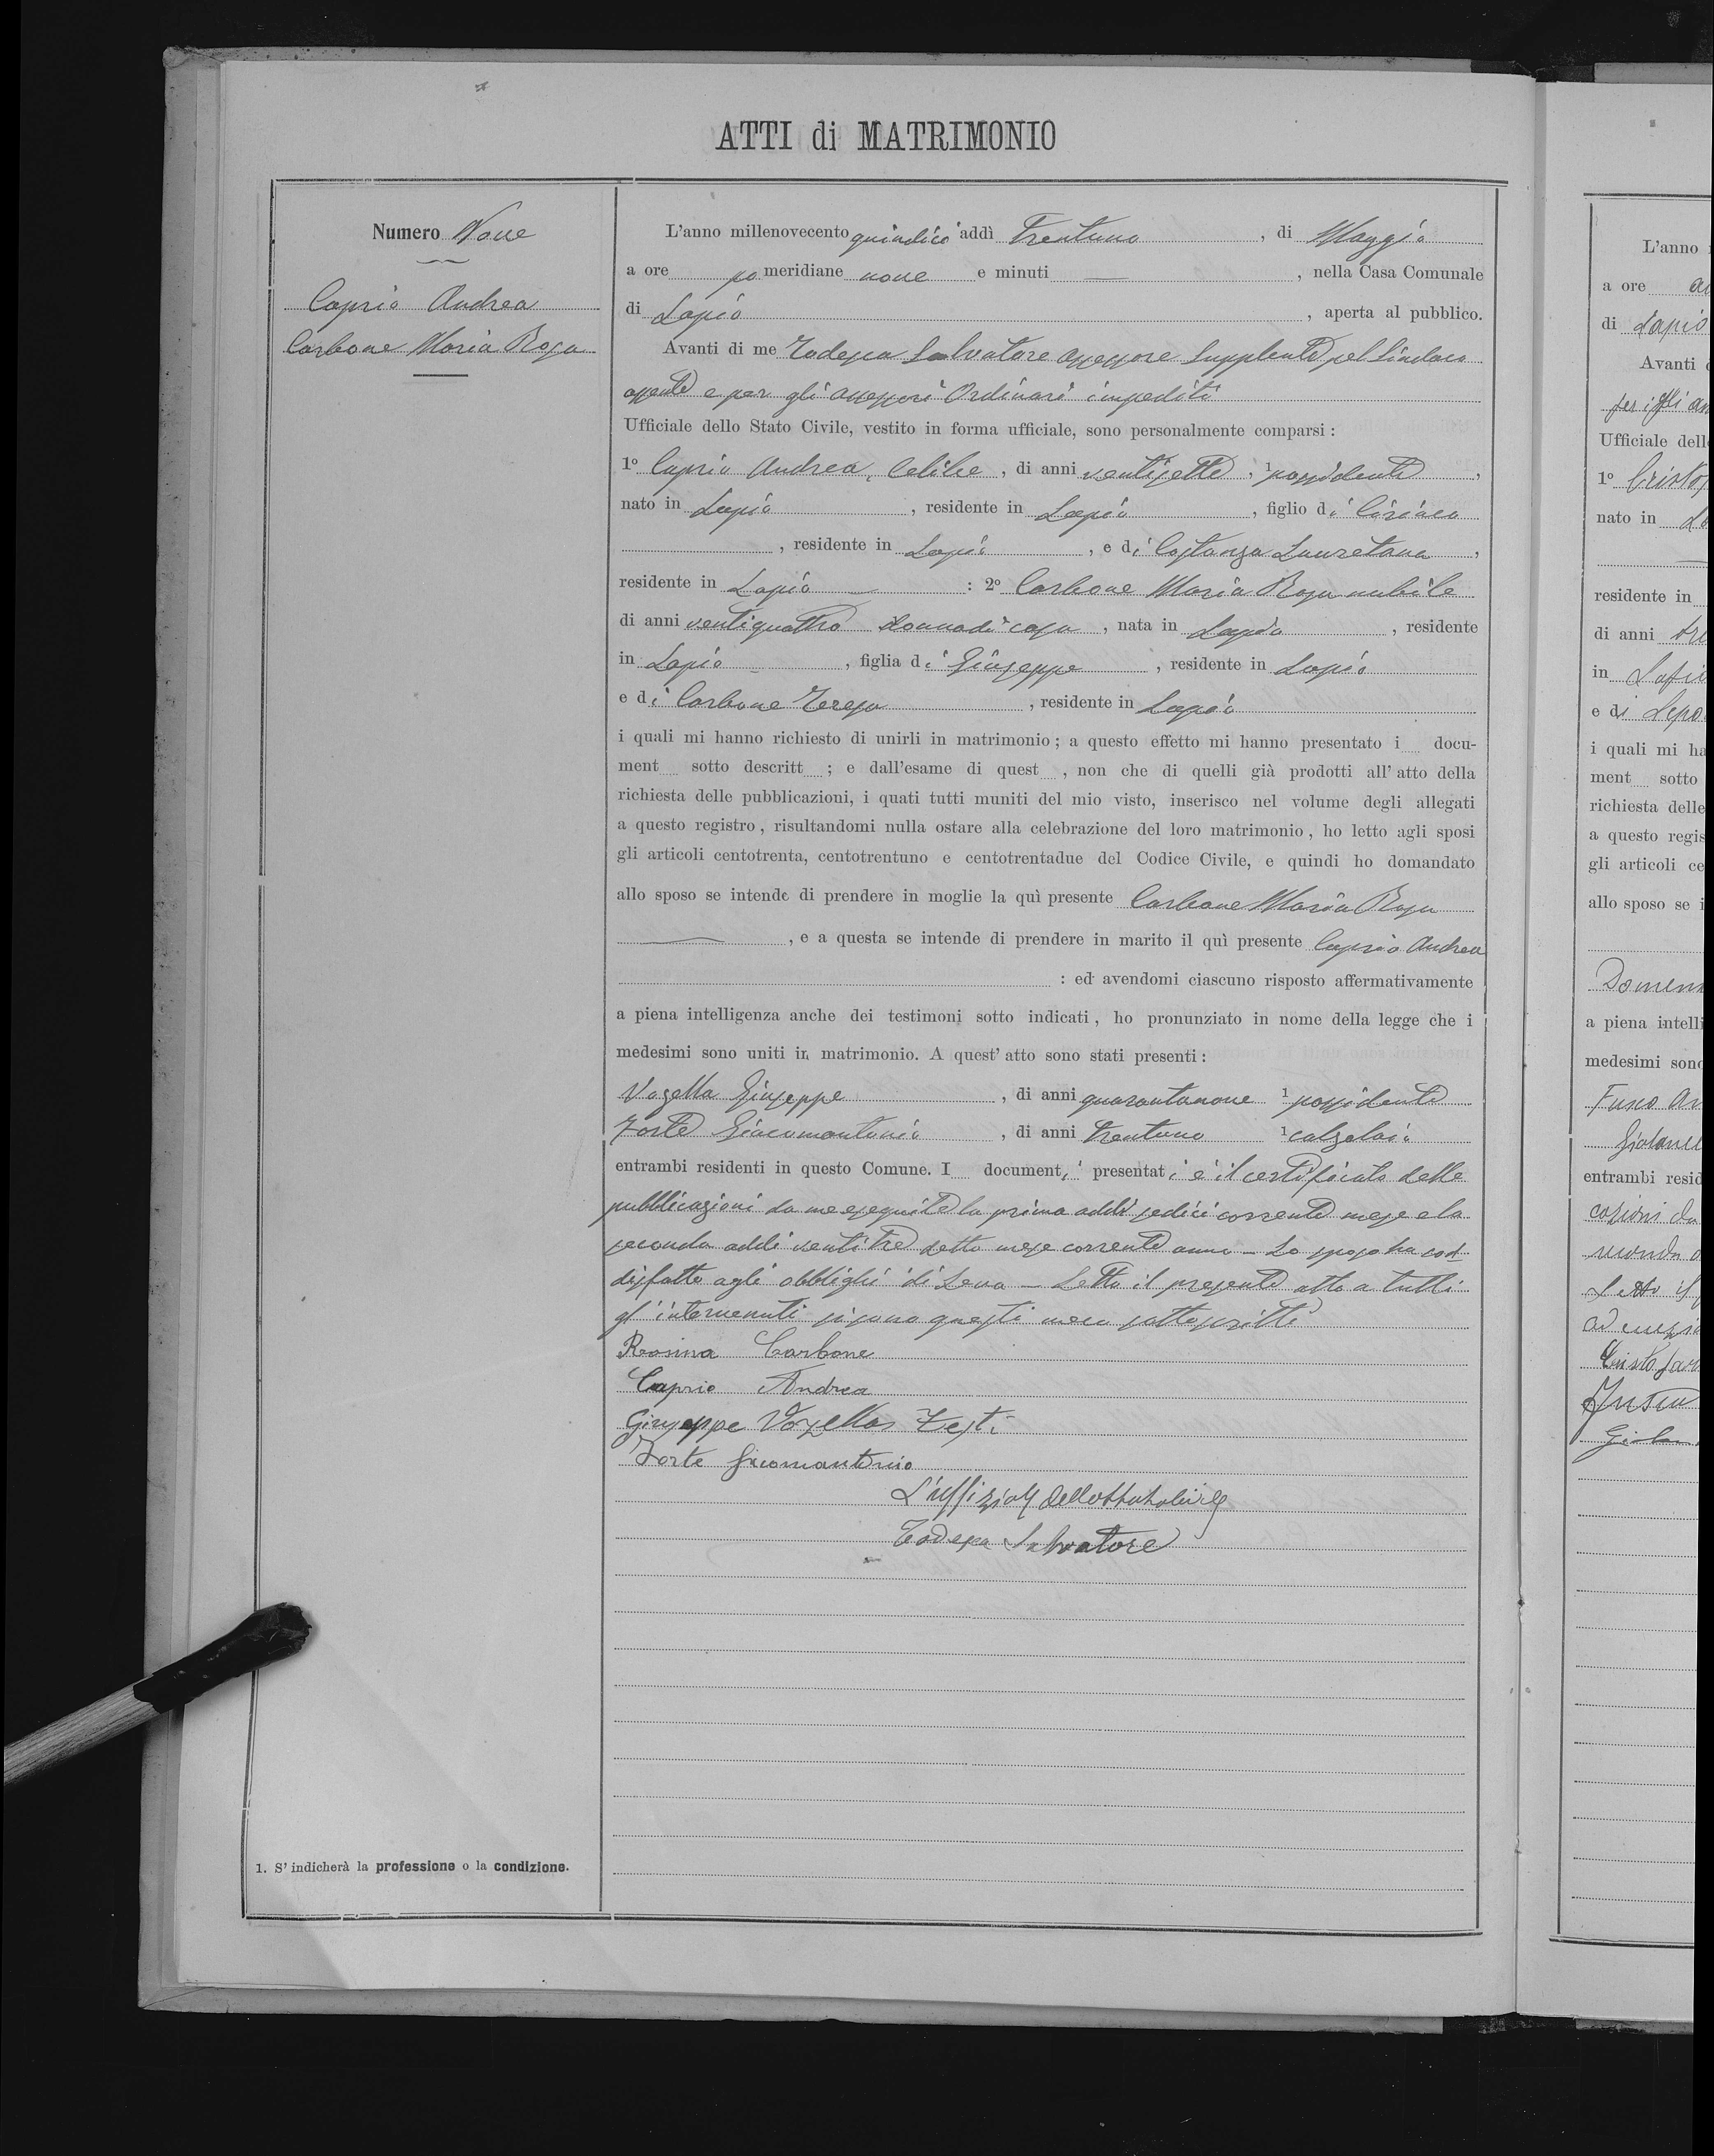 ATTI di MATRIMONIO
Numero Nove
Caprio Andrea
Carbone Maria Rosa
1. S' indicherà la professione o la condizione.
L'anno millenovecento quindici addì Trentuno , di Maggio
a ore po meridiane nove e minuti — , nella Casa Comunale
di Lapio , aperta al pubblico.
Avanti di me Todesca Salvatore assessore Supplente pel Sindaco
assente e per gli assessori Ordinari impediti
Ufficiale dello Stato Civile, vestito in forma ufficiale, sono personalmente comparsi :
1º Caprio Andrea, Celibe , di anni ventisette , 1 possidente ,
nato in Lapio , residente in Lapio , figlio di Ciriaco
, residente in Lapio , e di Costanza Lauretana ,
residente in Lapio — : 2º Carbone Maria Rosa nubile
di anni ventiquattro donna di casa , nata in Lapio , residente
in Lapio , figlia di Giuseppe , residente in Lapio
e di Carbone Teresa , residente in Lapio
i quali mi hanno richiesto di unirli in matrimonio ; a questo effetto mi hanno presentato i docu-
ment sotto descritt ; e dall'esame di quest , non che di quelli già prodotti all' atto della
richiesta delle pubblicazioni, i quati tutti muniti del mio visto, inserisco nel volume degli allegati
a questo registro , risultandomi nulla ostare alla celebrazione del loro matrimonio , ho letto agli sposi
gli articoli centotrenta, centotrentuno e centotrentadue del Codice Civile, e quindi ho domandato
allo sposo se intende di prendere in moglie la quì presente Carbone Maria Rosa
— , e a questa se intende di prendere in marito il quì presente Caprio Andrea
: ed avendomi ciascuno risposto affermativamente
a piena intelligenza anche dei testimoni sotto indicati , ho pronunziato in nome della legge che i
medesimi sono uniti in matrimonio. A quest' atto sono stati presenti :
Vozella Giuseppe , di anni quarantanove 1 possidente
Forte Giacomantonio , di anni trentuno 1 calzolaio
entrambi residenti in questo Comune. I documenti presentati è il certificato delle
pubblicazioni da me eseguite la prima addì sedici corrente mese e la
seconda addì ventitre detto mese corrente anno — Lo sposo ha sod-
disfatto agli obblighi di Leva — Letto il presente atto a tutti
gl'intervenuti si sono questi meco sottoscritti
Rosina Carbone
Caprio Andrea
Giuseppe Vozella Testi
Forte Giacomantonio
L'uffiziale dello Stato Civile
Todesca Salvatore
L'anno
a ore
di Lapio
Avanti
Ufficiale dell
1º Cristof
nato in
residente in
di anni tre
in Lapio
e di
i quali mi ha
ment sotto
richiesta delle
a questo regis
gli articoli ce
allo sposo se i
Domeni
a piena intelli
medesimi sono
Fusco
entrambi resid